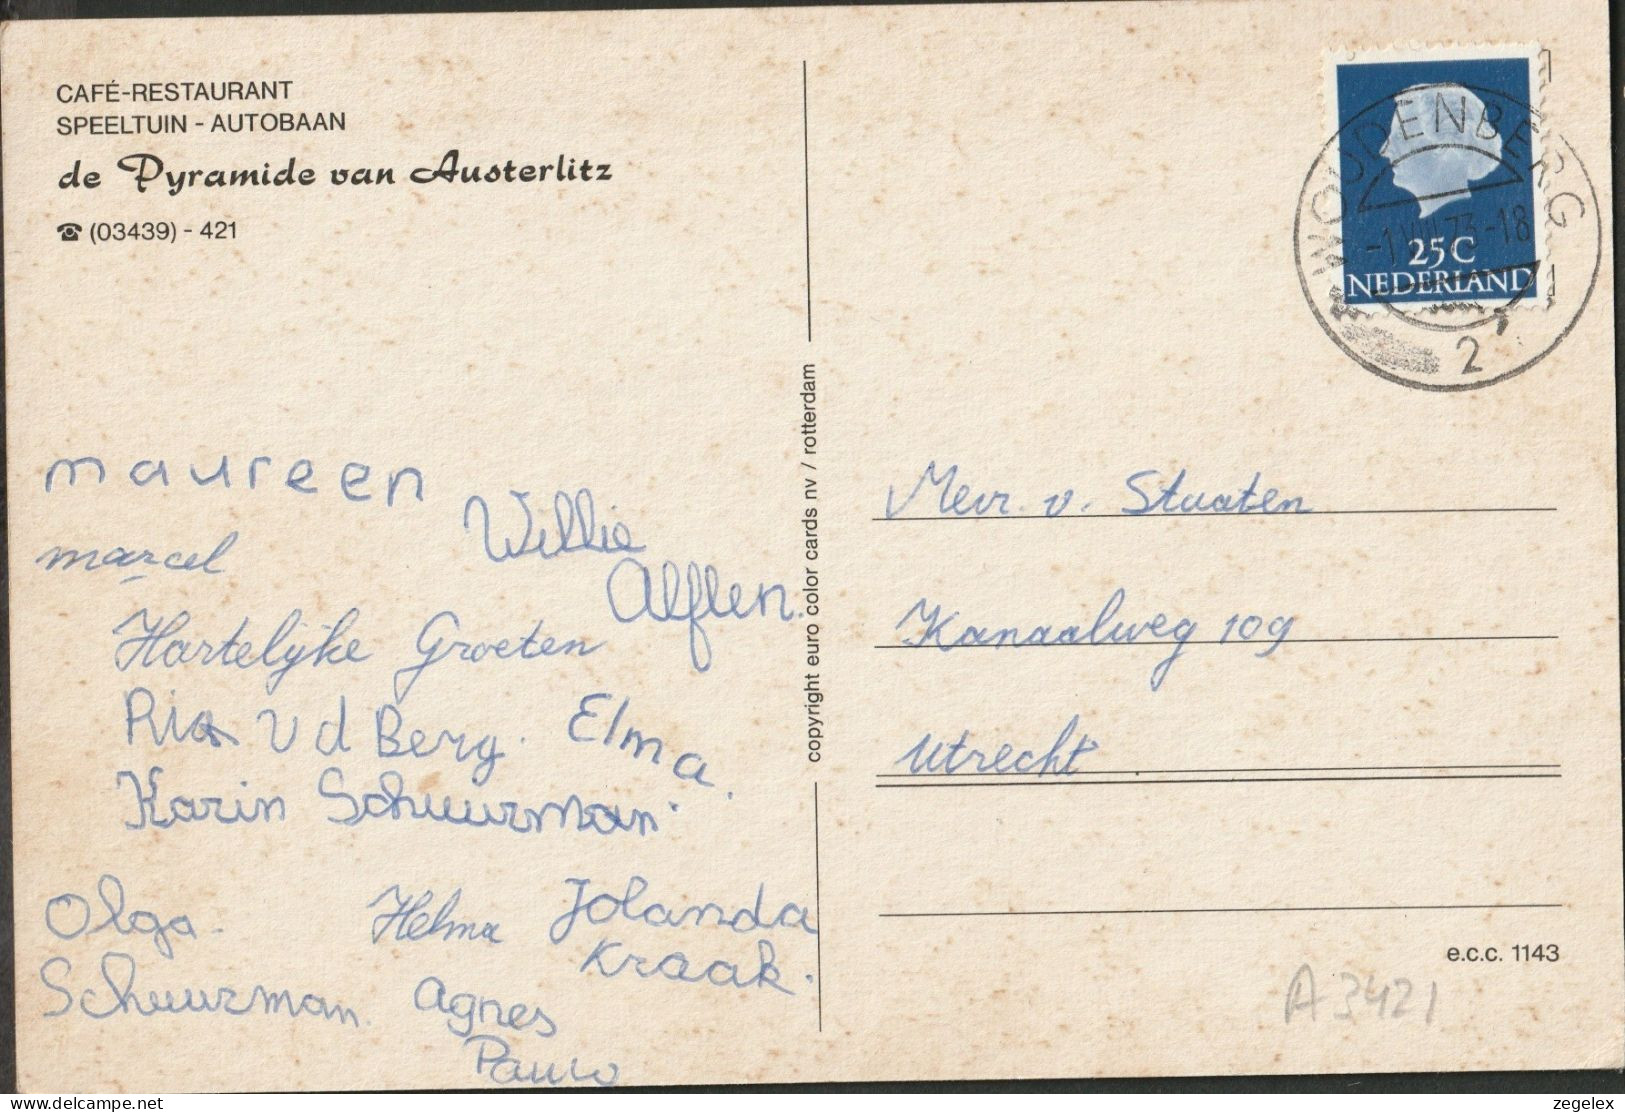 CAFÉ-RESTAURANT
SPEELTUIN - AUTOBAAN
de Pyramide van Austerlitz
☎ (03439) - 421
maureen
Willie
Alflen.
marcel
Hartelijke Groeten
Ria v d Berg. Elma.
Karin Schuurman.
Olga
Schuurman.
Helma
Jolanda
Kraak.
Agnes
Pauw
copyright euro color cards nv / rotterdam
WOUDENBERG
-1 VIII 73-18
2
25 C
NEDERLAND
Mevr. v. Staaten
Kanaalweg 109
Utrecht
e.c.c. 1143
A3421
zegelex